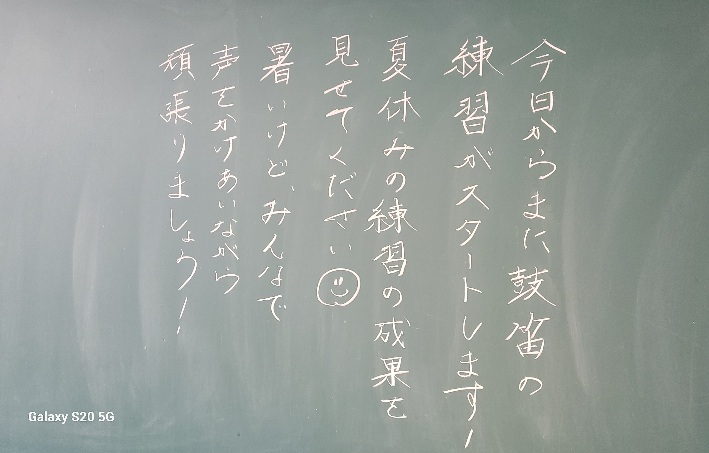 今日からまた鼓笛の
練習がスタートします!
夏休みの練習の成果を
見せてください
暑いけど、みんなで
声をかけあいながら
頑張りましょう!
Galaxy S20 5G